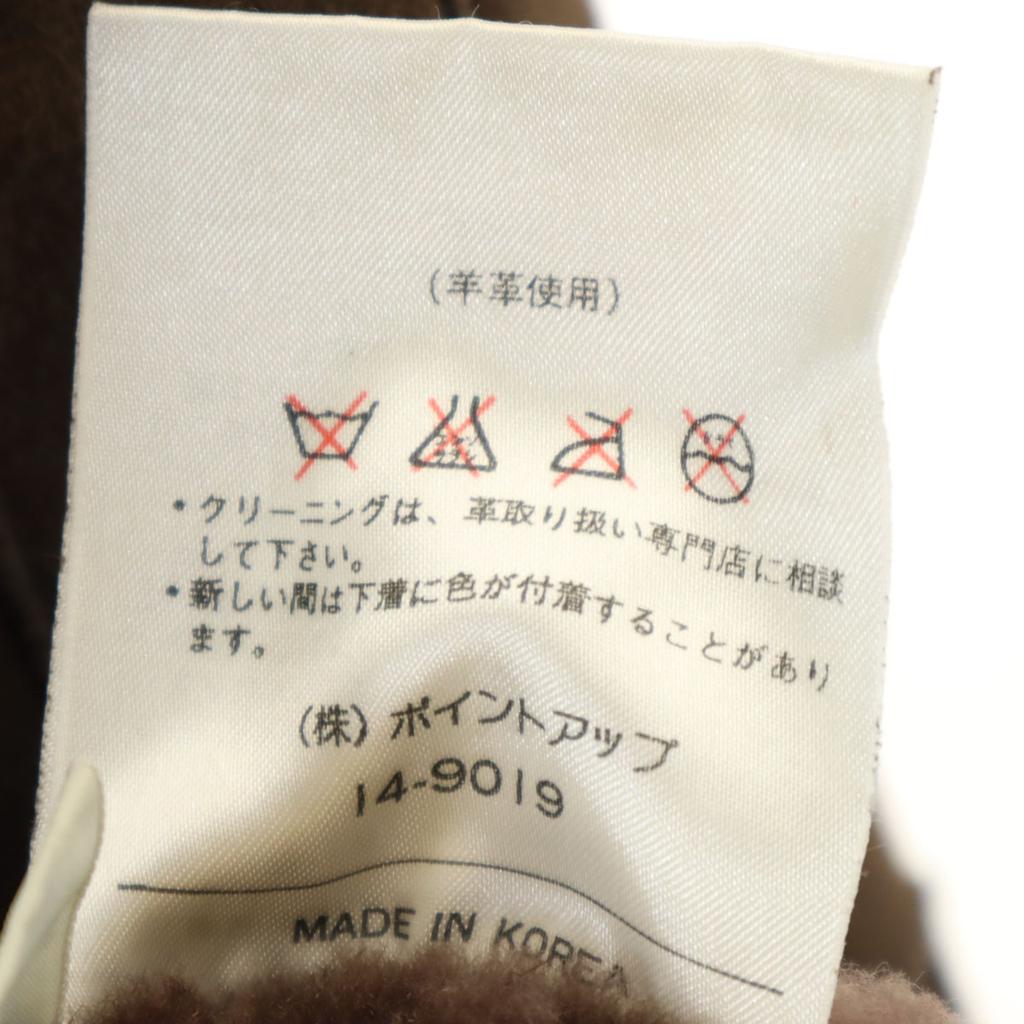 (羊革使用)
・クリーニングは、革取り扱い専門店に相談
して下さい。
・新しい間は下着に色が付着することがあり
ます。
(株)ポイントアップ
14-9019
MADE IN KOREA